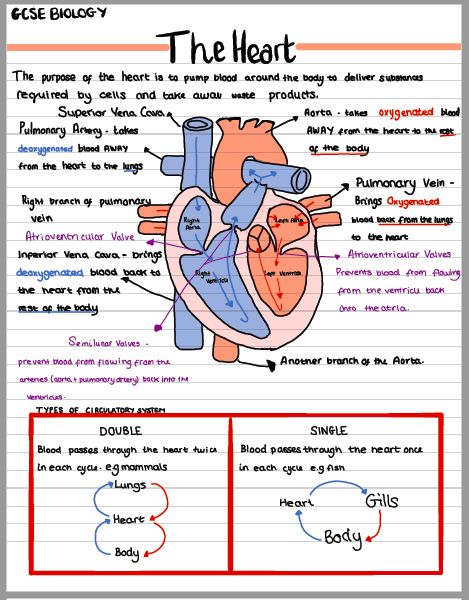 GCSE BIOLOGY
The Heart
The purpose of the heart is to pump blood around the body to deliver substances
required by cells and take away waste products.
Superior Vena Cava
Pulmonary Artery - takes
deoxygenated blood AWAY
from the heart to the lungs
Right branch of pulmonary
vein
Atrioventricular Valve
Inferior Vena Cava - brings
deoxygenated blood back to
the heart from the
rest of the body
Semilunar Valves -
prevent blood from flowing from the
arteries (aorta + pulmonary artery) back into the
ventricles.
Aorta - takes oxygenated blood
AWAY from the heart to the rest
of the body
Pulmonary Vein -
Brings Oxygenated
blood back from the lungs
to the heart
Atrioventricular Valves
Prevents blood from flowing
from the ventricle back
into the atria.
Another branch of the Aorta.
Right
Atria
Left Atria
Right
Ventricle
Left Ventricle
TYPES OF CIRCULATORY SYSTEM
DOUBLE
Blood passes through the heart twice
in each cycle. e.g mammals
Lungs
Heart
Body
SINGLE
Blood passes through the heart once
in each cycle e.g fish
Heart
Gills
Body